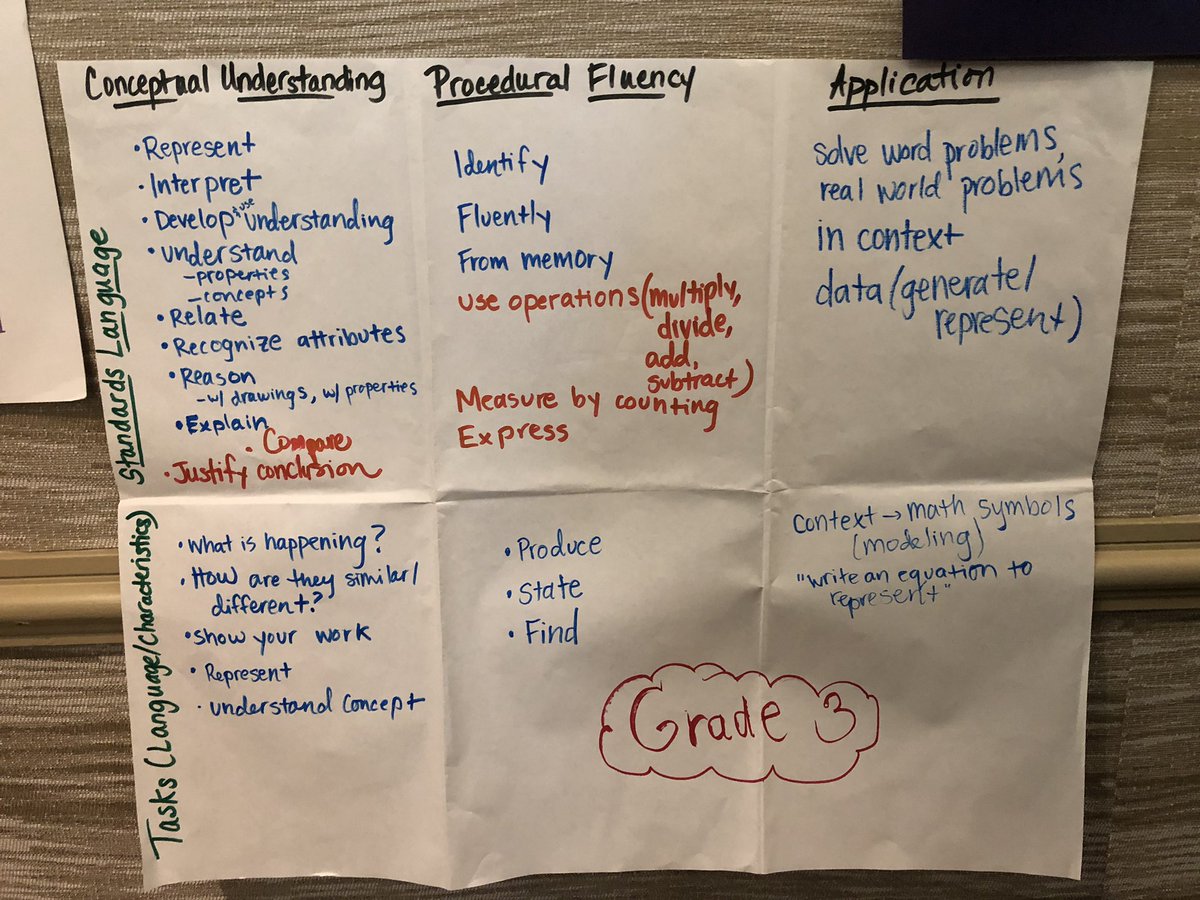 Conceptual Understanding
Procedural Fluency
Application
Standards Language
• Represent
• Interpret
• Develop & use understanding
• understand
- properties
- concepts
• Relate
• Recognize attributes
• Reason
- w/ drawings, w/ properties
• Explain
• Compare
• Justify conclusion
Identify
Fluently
From memory
use operations (multiply,
divide,
add,
subtract)
Measure by counting
Express
solve word problems,
real world problems
in context
data (generate/
represent)
Tasks (Language/Characteristics)
• What is happening?
• How are they similar/
different?
• show your work
• Represent
• understand concept
• Produce
• State
• Find
context → math symbols
(modeling)
"write an equation to
represent"
Grade 3